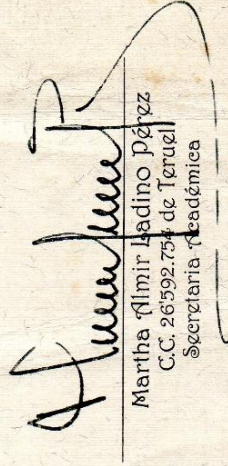 Martha Almir Ladino Pérez
C.C. 26'592.754 de Teruel
Secretaria Académica